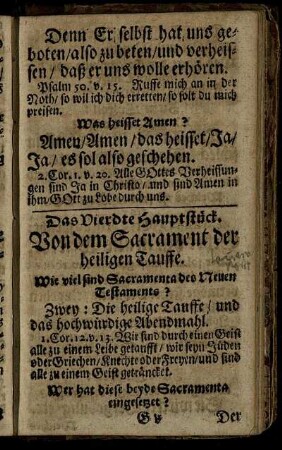 Denn Er selbst hat uns ge-
boten/also zu beten/und verheis-
sen/ daß er uns wolle erhören.
Psalm 50. v. 15. Ruffe mich an in der
Noth/ so wil ich dich erretten/ so solt du mich
preisen.
Was heisset Amen?
Amen/Amen/das heisset/Ja/
Ja/ es sol also geschehen.
2. Cor. 1. v. 20. Alle GOttes Verheissun-
gen sind Ja in Christo/ und sind Amen in
ihm/ GOtt zu Lobe durch uns.
Das Vierdte Hauptstück.
Von dem Sacrament der
heiligen Tauffe.
Wie viel sind Sacramenta des Neuen
Testaments?
Zwey: Die heilige Tauffe/ und
das hochwürdige Abendmahl.
1. Cor. 12. v. 13. Wir sind durch einen Geist
alle zu einem Leibe getaufft/ wir seyn Jüden
oder Griechen/ Knechte oder Freyen/ und sind
alle zu einem Geist geträncket.
Wer hat diese beyde Sacramenta
eingesetzet?
G v Der